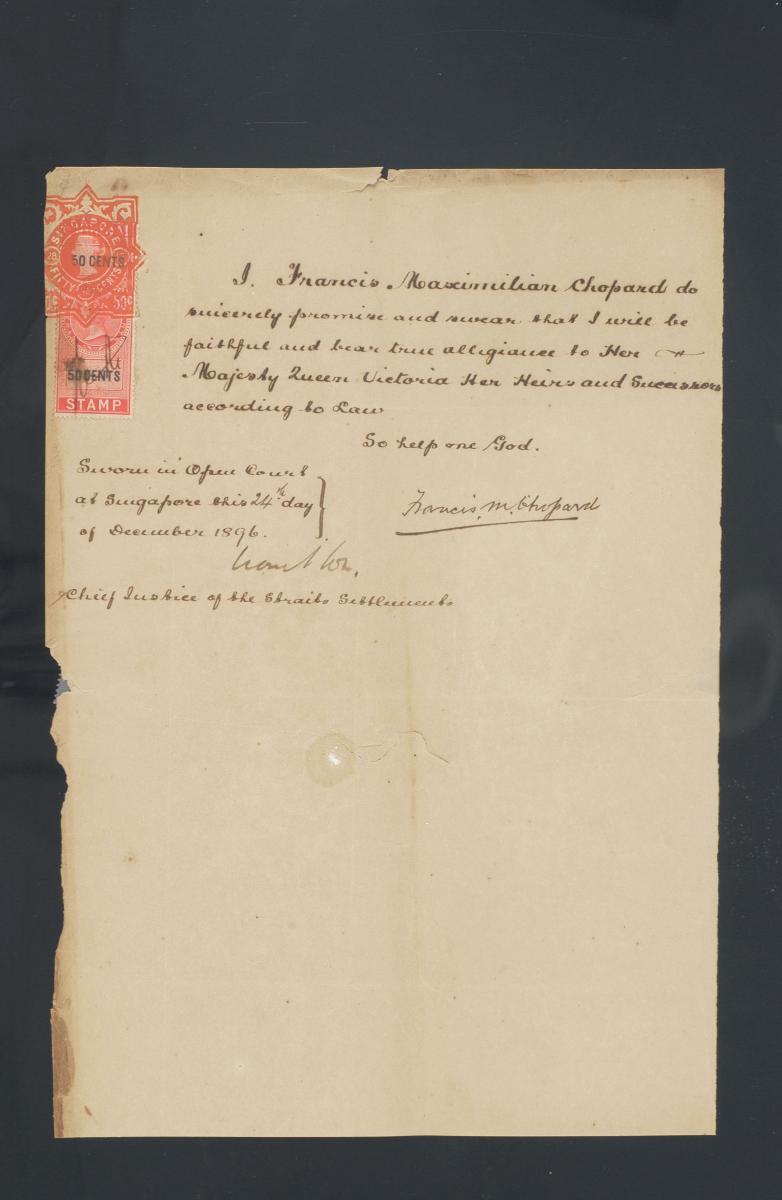 SINGAPORE
50 CENTS
FIFTY CENTS
50c
50 CENTS
STAMP
I. Francis Maximilian Chopard do
sincerely promise and swear that I will be
faithful and bear true allegiance to Her
Majesty Queen Victoria Her Heirs and Successors
according to Law
So help me God.
Sworn in Open Court
at Singapore this 24th day
of December 1896.
Francis. M. Chopard
Chief Justice of the Straits Settlements